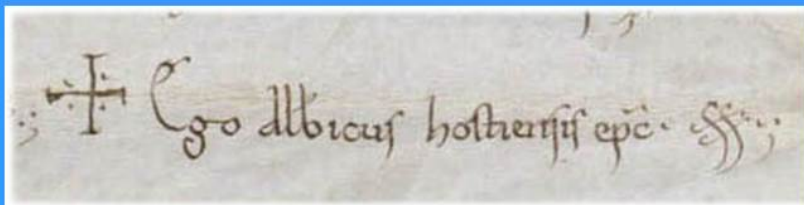 ✠ Ego albicus hostiensis ep̄c · ss